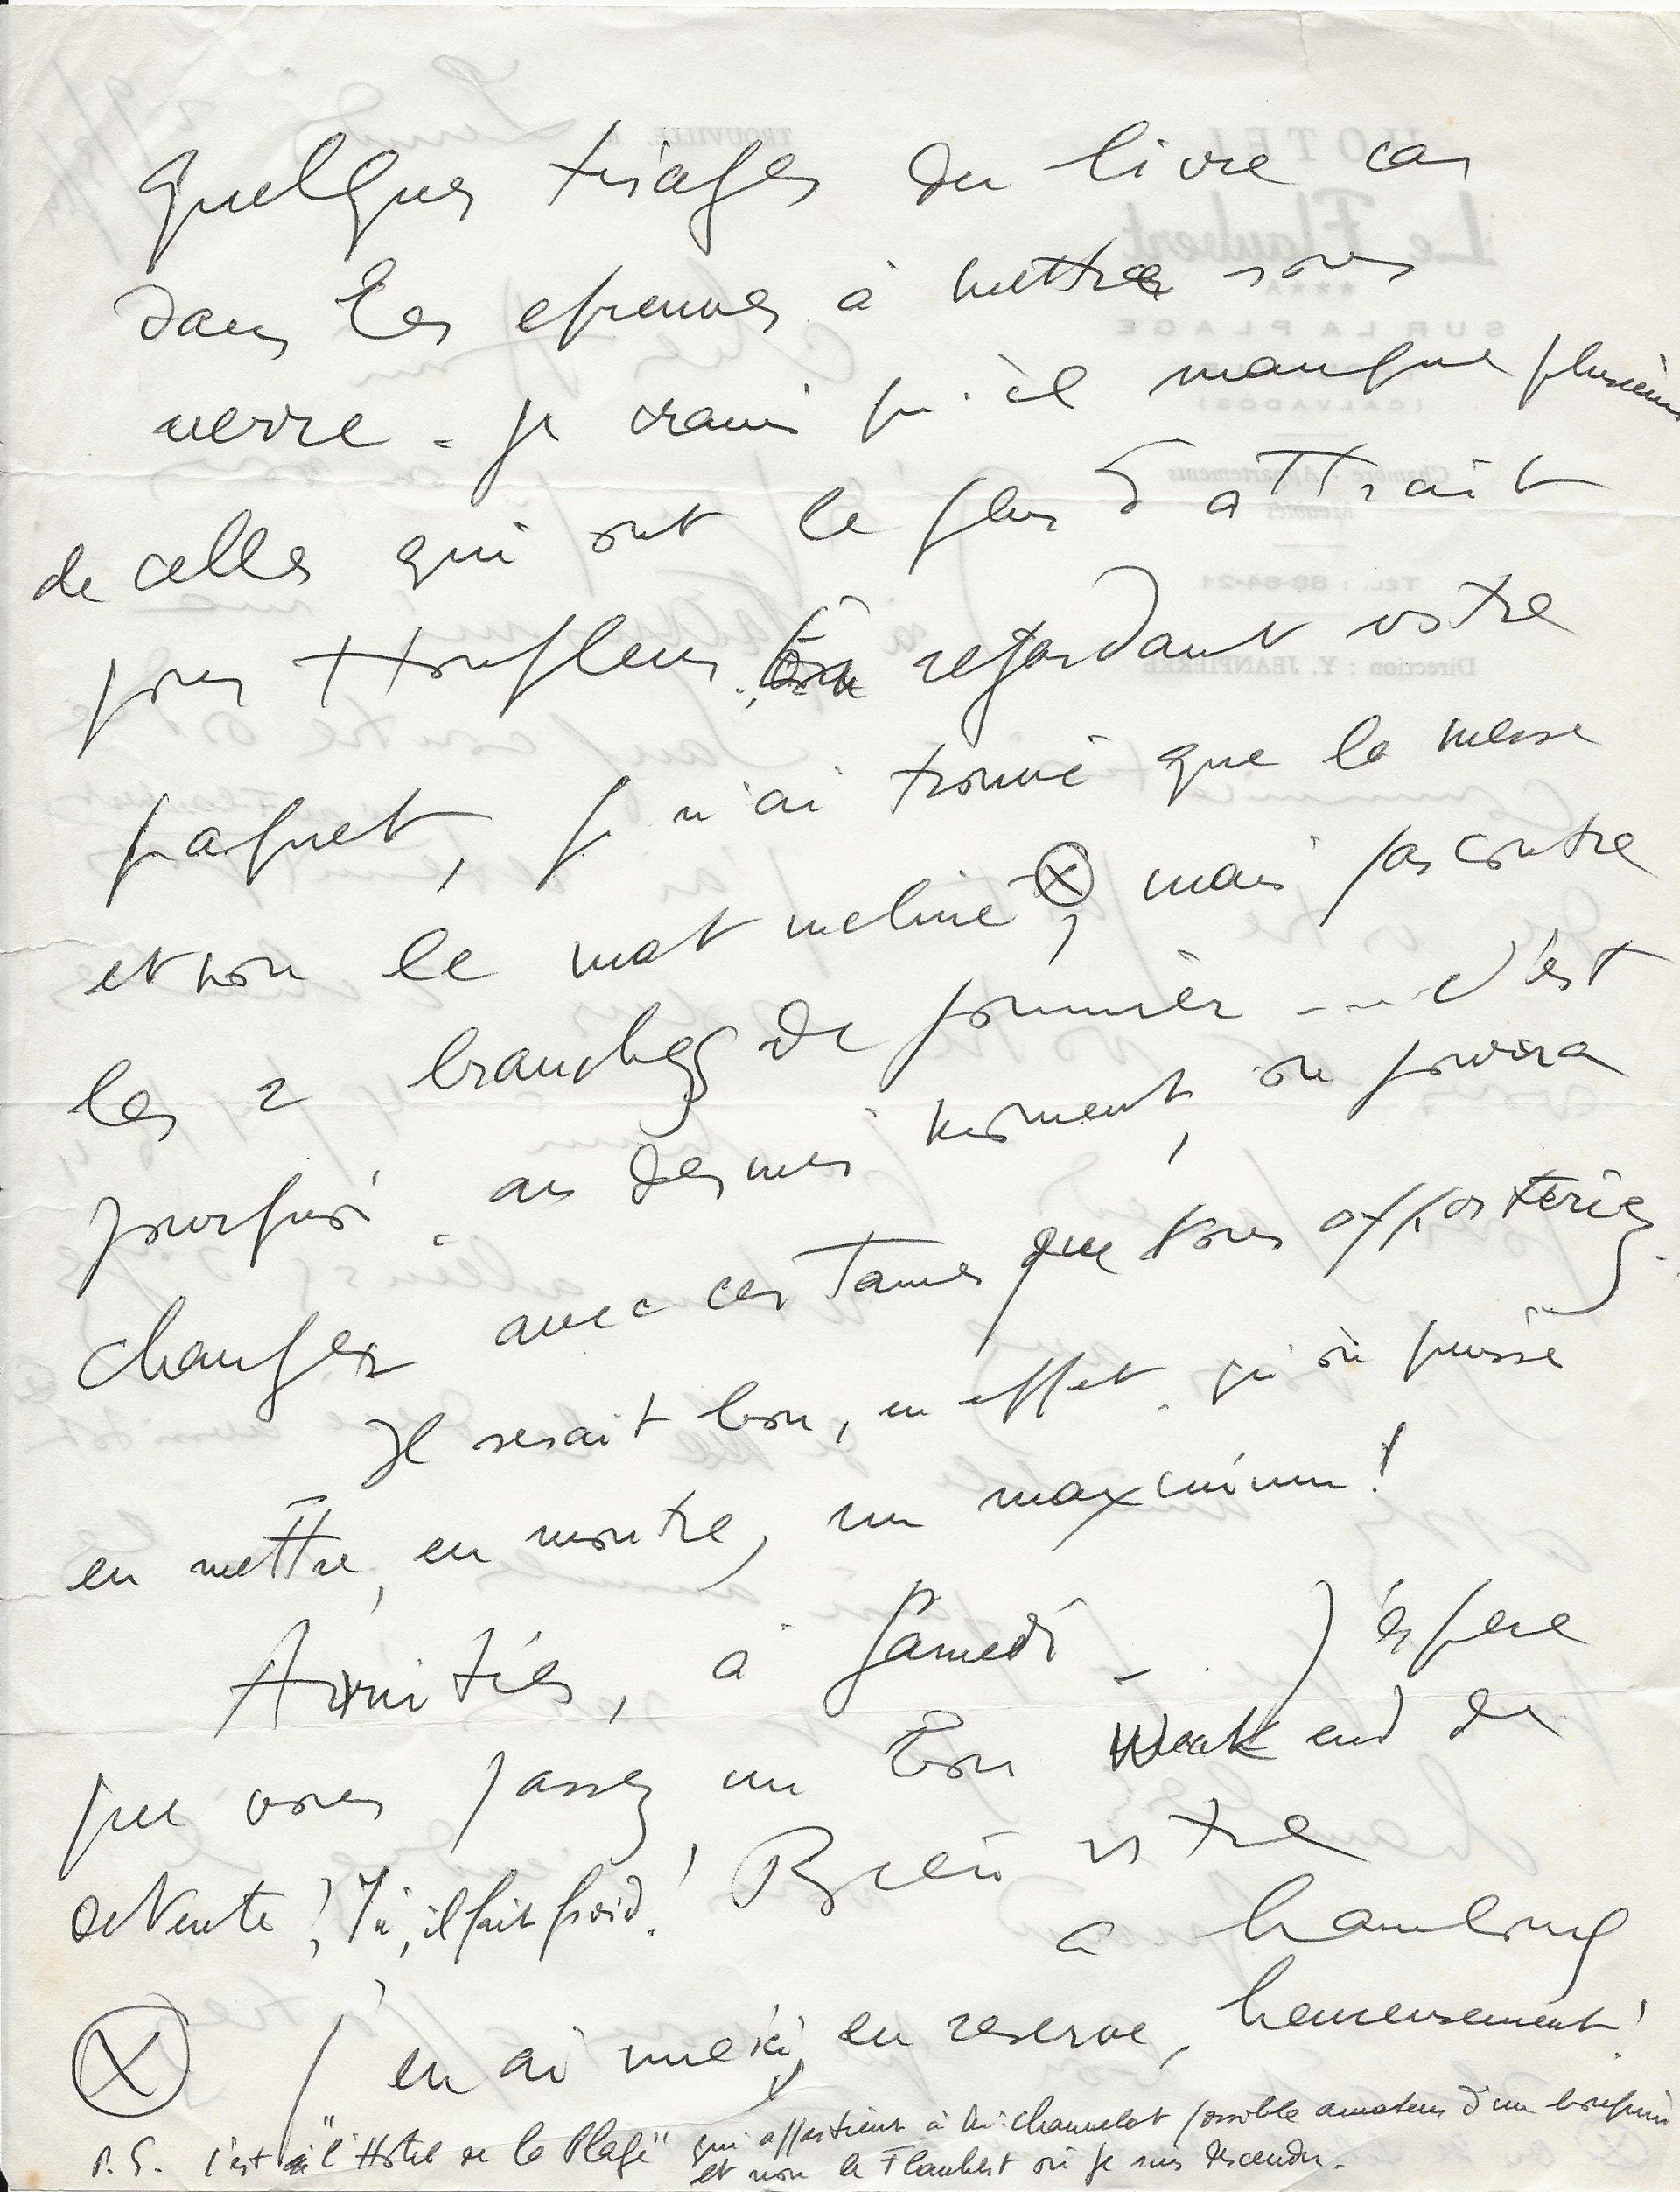 quelques tirages du livre car
dans les epreuves à mettre sous
verre - je crains qu'il manque plusieurs
de celles qui ont le plus d'attrait
pour Honfleur. En regardant votre
paquet, je n'ai trouvé que la messe
et non le mat incliné ⊗, mais par contre
les 2 branches de pommier --- c'est
pourquoi - au dernier moment, on pourra
changer avec certaines que vous apporteriez.
Il serait bon, en effet, qu'on puisse
en mettre, en montre, un maximum!
Amitiés, à Samedi - J'éspere
que vous passez un bon Week end de
detente! Ici, il fait froid! Bien votre
a hambourg
⊗ J'en ai une ici, en reserve, heureusement!
P.S. c'est à "l'Hôtel de la Plage" qui appartient à Mr. possible amateur d'un
et non le Flaubert où je suis descendu.
HOTEL
Le Flaubert
****
SUR LA PLAGE
TROUVILLE
(CALVADOS)
Chambre - Appartements
Meublés
TEL. : 88-64-21
Direction : Y. JEANPIERRE